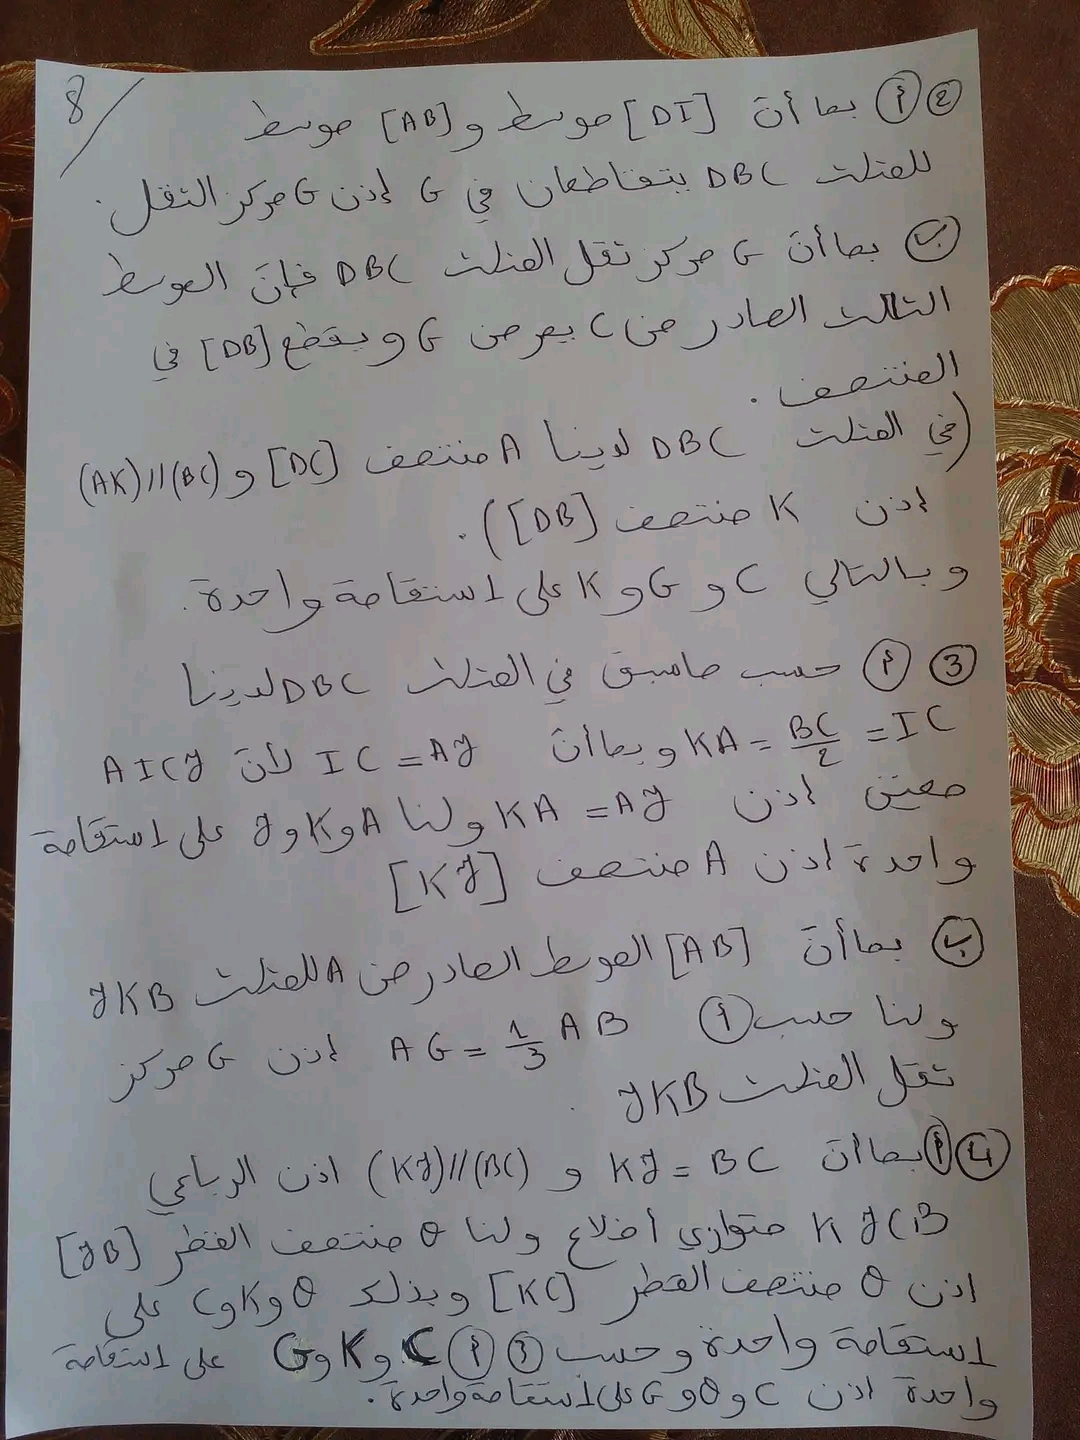 8/
② أ) بما أنّ [DI] موسط و [AB] موسط
للمثلث DBC يتقاطعان في G إذن G مركز الثقل.
ب) بما أنّ G مركز ثقل المثلث DBC فإنّ الموسط
الثالث الصادر من C يمر من G ويقطع [DB] في
المنتصف.
(في المثلث DBC لدينا A منتصف [DC] و (AK)//(BC)
إذن K منتصف [DB]).
وبالتالي C و G و K على استقامة واحدة.
③ أ) حسب ما سبق في المثلث DBC لدينا
KA = BC/2 = IC وبما أنّ IC = AJ لأنّ AICJ
معين إذن KA = AJ ولنا A و K و J على استقامة
واحدة إذن A منتصف [KJ]
ب) بما أنّ [AB] الموسط الصادر من A للمثلث JKB
ولنا حسب أ) AG = 1/3 AB إذن G مركز
ثقل المثلث JKB.
④ أ) بما أنّ KJ = BC و (KJ)//(BC) إذن الرباعي
KJCB متوازي أضلاع ولنا θ منتصف القطر [JB]
إذن θ منتصف القطر [KC] وبذلك θ و K و C على
استقامة واحدة وحسب ③ أ) C و K و G على استقامة
واحدة إذن C و θ و G على استقامة واحدة.